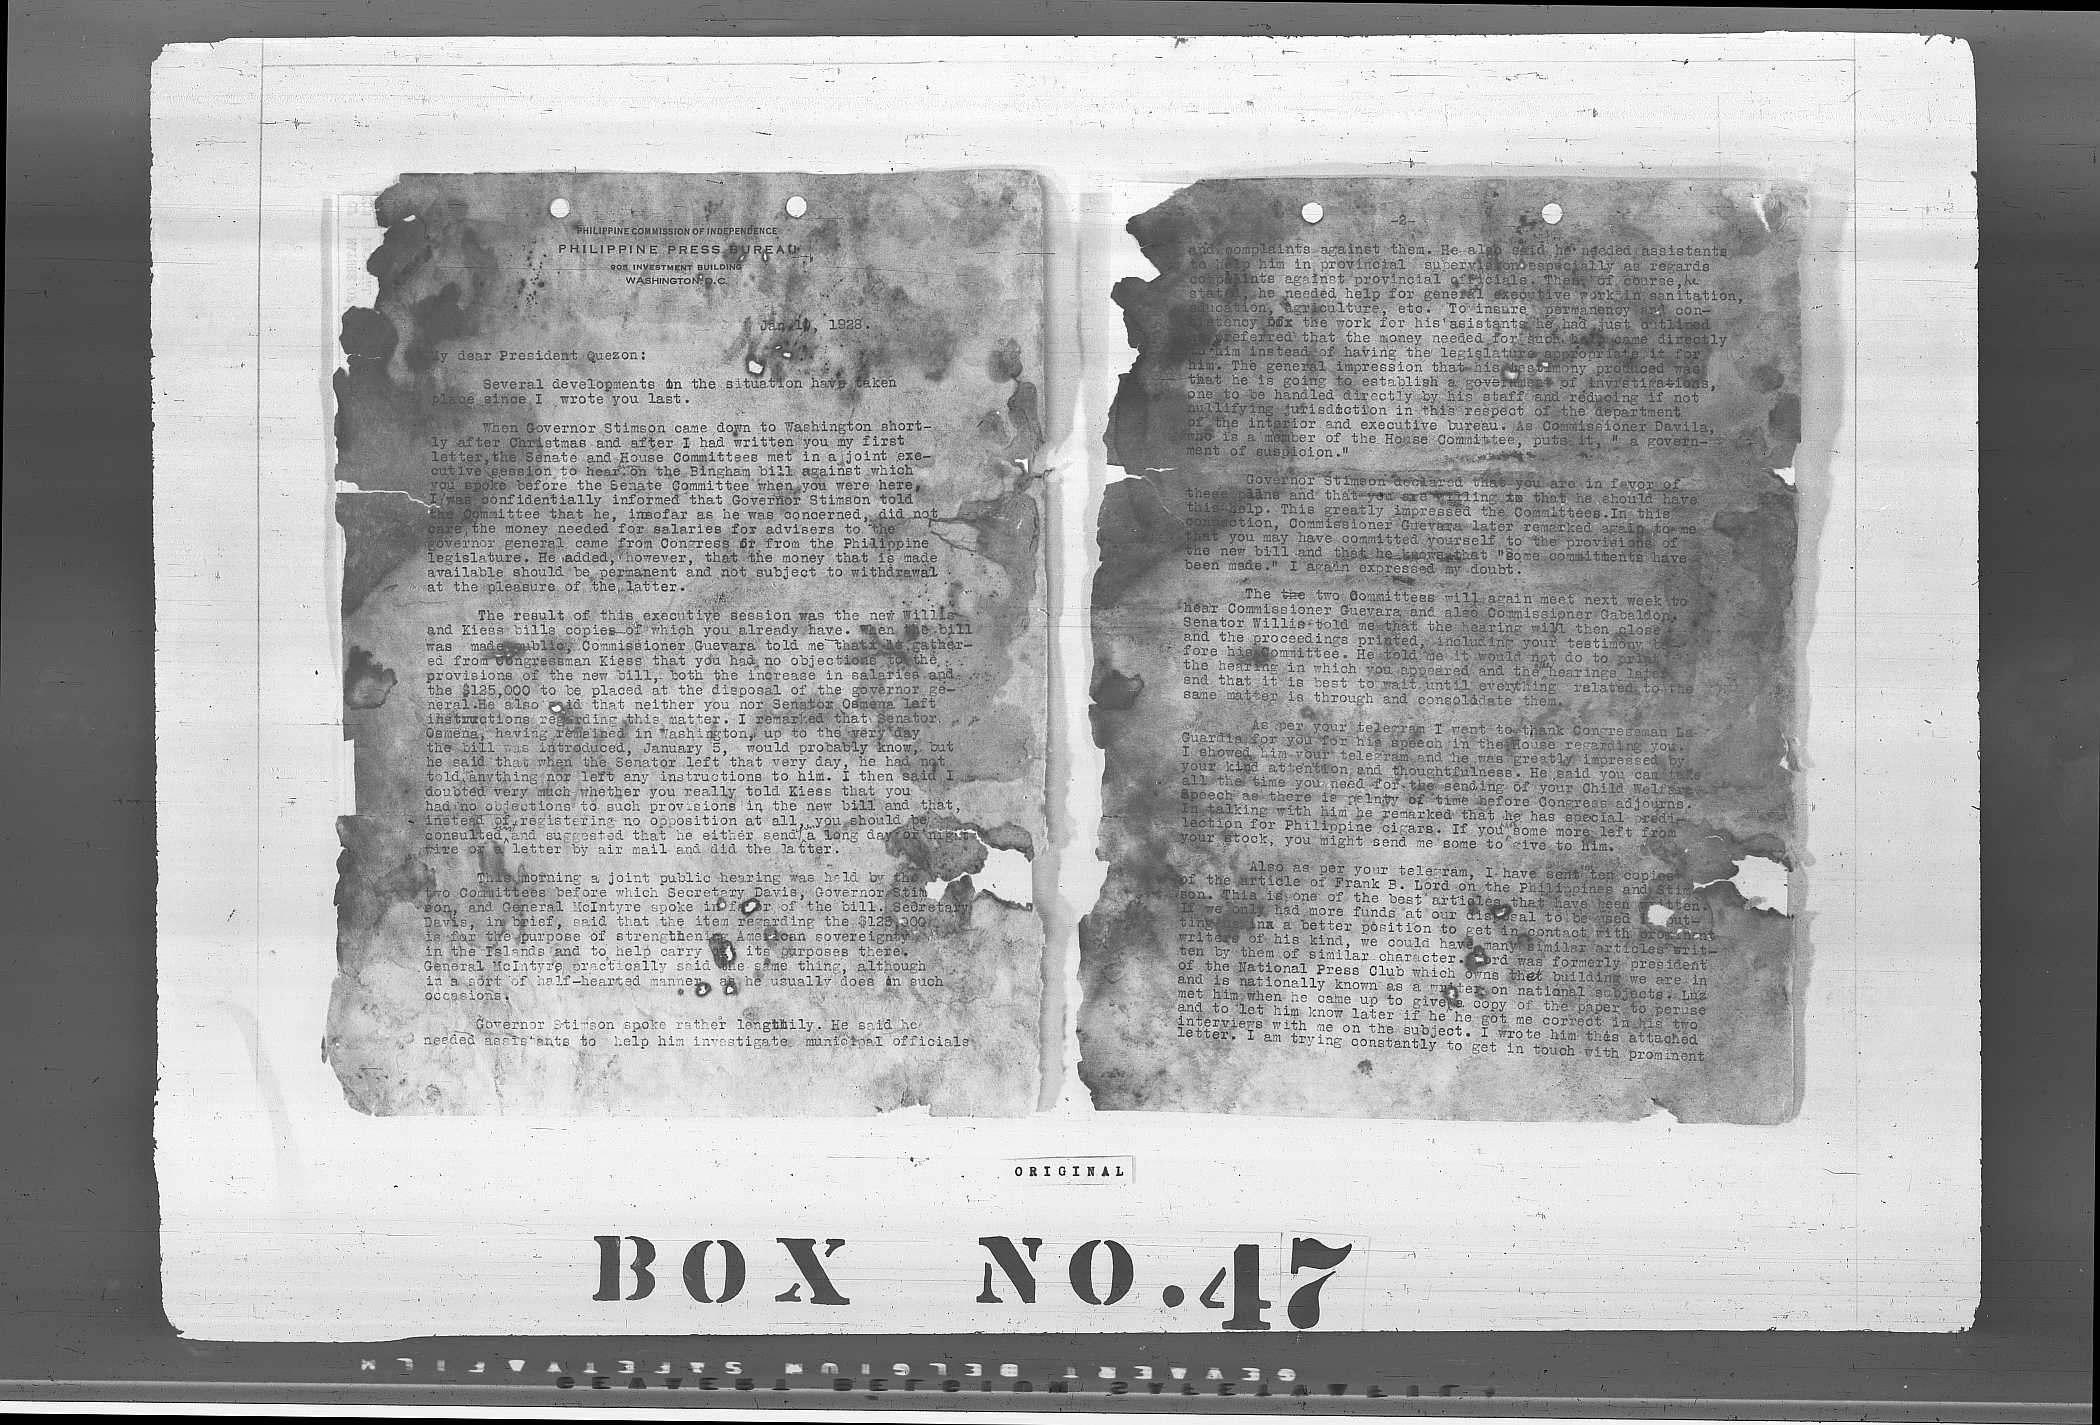 PHILIPPINE COMMISSION OF INDEPENDENCE
PHILIPPINE PRESS BUREAU
905 INVESTMENT BUILDING
WASHINGTON, D.C.
Jan 10, 1928.
My dear President Quezon:
Several developments in the situation have taken
place since I wrote you last.
When Governor Stimson came down to Washington short-
ly after Christmas and after I had written you my first
letter, the Senate and House Committees met in a joint exe-
cutive session to hear on the Bingham bill against which
you spoke before the Senate Committee when you were here,
I was confidentially informed that Governor Stimson told
the Committee that he, insofar as he was concerned, did not
care the money needed for salaries for advisers to the
governor general came from Congress or from the Philippine
legislature. He added, however, that the money that is made
available should be permanent and not subject to withdrawal
at the pleasure of the latter.
The result of this executive session was the new Willis
and Kiess bills copies of which you already have. When the bill
was made public, Commissioner Guevara told me that he gather-
ed from Congressman Kiess that you had no objections to the
provisions of the new bill, both the increase in salaries and
the $125,000 to be placed at the disposal of the governor ge-
neral. He also said that neither you nor Senator Osmena left
instructions regarding this matter. I remarked that Senator
Osmena, having remained in Washington, up to the very day
the bill was introduced, January 5, would probably know, but
he said that when the Senator left that very day, he had not
told anything nor left any instructions to him. I then said I
doubted very much whether you really told Kiess that you
had no objections to such provisions in the new bill and that,
instead of registering no opposition at all, you should be
consulted and suggested that he either send a long day or night
wire or a letter by air mail and did the latter.
This morning a joint public hearing was held by the
two Committees before which Secretary Davis, Governor Stim
son, and General McIntyre spoke in favor of the bill. Secretary
Davis, in brief, said that the item regarding the $125,000
is for the purpose of strengthening American sovereignty
in the Islands and to help carry its purposes there.
General McIntyre practically said the same thing, although
in a sort of half-hearted manner as he usually does in such
occasions.
Governor Stimson spoke rather lengthily. He said he
needed assistants to help him investigate municipal officials
-2-
and complaints against them. He also said he needed assistants
to help him in provincial supervision especially as regards
complaints against provincial officials. Then, of course, he
stated, he needed help for general executive work in sanitation,
education, agriculture, etc. To insure permanency and con-
sistency of the work for his asistants he had just outlined
he preferred that the money needed for such help came directly
to him instead of having the legislature appropriate it for
him. The general impression that his testimony produced was
that he is going to establish a government of invrstigations,
one to be handled directly by his staff and reducing if not
nullifying jurisdiction in this respect of the department
of the interior and executive bureau. As Commissioner Davila,
who is a member of the House Committee, puts it, " a govern-
ment of suspicion."
Governor Stimson declared that you are in favor of
these plans and that you are willing that he should have
this help. This greatly impressed the Committees. In this
connection, Commissioner Guevara later remarked again to me
that you may have committed yourself to the provisions of
the new bill and that he knows that "Some committments have
been made." I again expressed my doubt.
The the two Committees will again meet next week to
hear Commissioner Guevara and also Commissioner Gabaldon,
Senator Willis told me that the hearing will then close
and the proceedings printed, including your testimony be-
fore his Committee. He told me it would not do to print
the hearing in which you appeared and the hearings later
and that it is best to wait until everything related to the
same matter is through and consolidate them.
As per your telegram I went to thank Congressman La
Guardia for you for his speech in the House regarding you.
I showed him your telegram and he was greatly impressed by
your kind attention and thoughtfulness. He said you can take
all the time you need for the sending of your Child Welfare
Speech as there is pelnty of time before Congress adjourns.
In talking with him he remarked that he has special predi-
lection for Philippine cigars. If you some more left from
your stock, you might send me some to give to him.
Also as per your telegram, I have sent ten copies
of the article of Frank B. Lord on the Philippines and Stim
son. This is one of the best articles that have been written.
If we only had more funds at our disposal to be used put-
ting a better position to get in contact with prominent
writers of his kind, we could have many similar articles writ-
ten by them of similar character. Lord was formerly president
of the National Press Club which owns the building we are in
and is nationally known as a writer on national subjects. Luz
met him when he came up to give a copy of the paper to peruse
and to let him know later if he he got me correct in his two
interviews with me on the subject. I wrote him this attached
letter. I am trying constantly to get in touch with prominent
ORIGINAL
BOX NO. 47
GEVAERT BELGIUM SAFETY FILM
GEVAERT BELGIUM SAFETY FILM